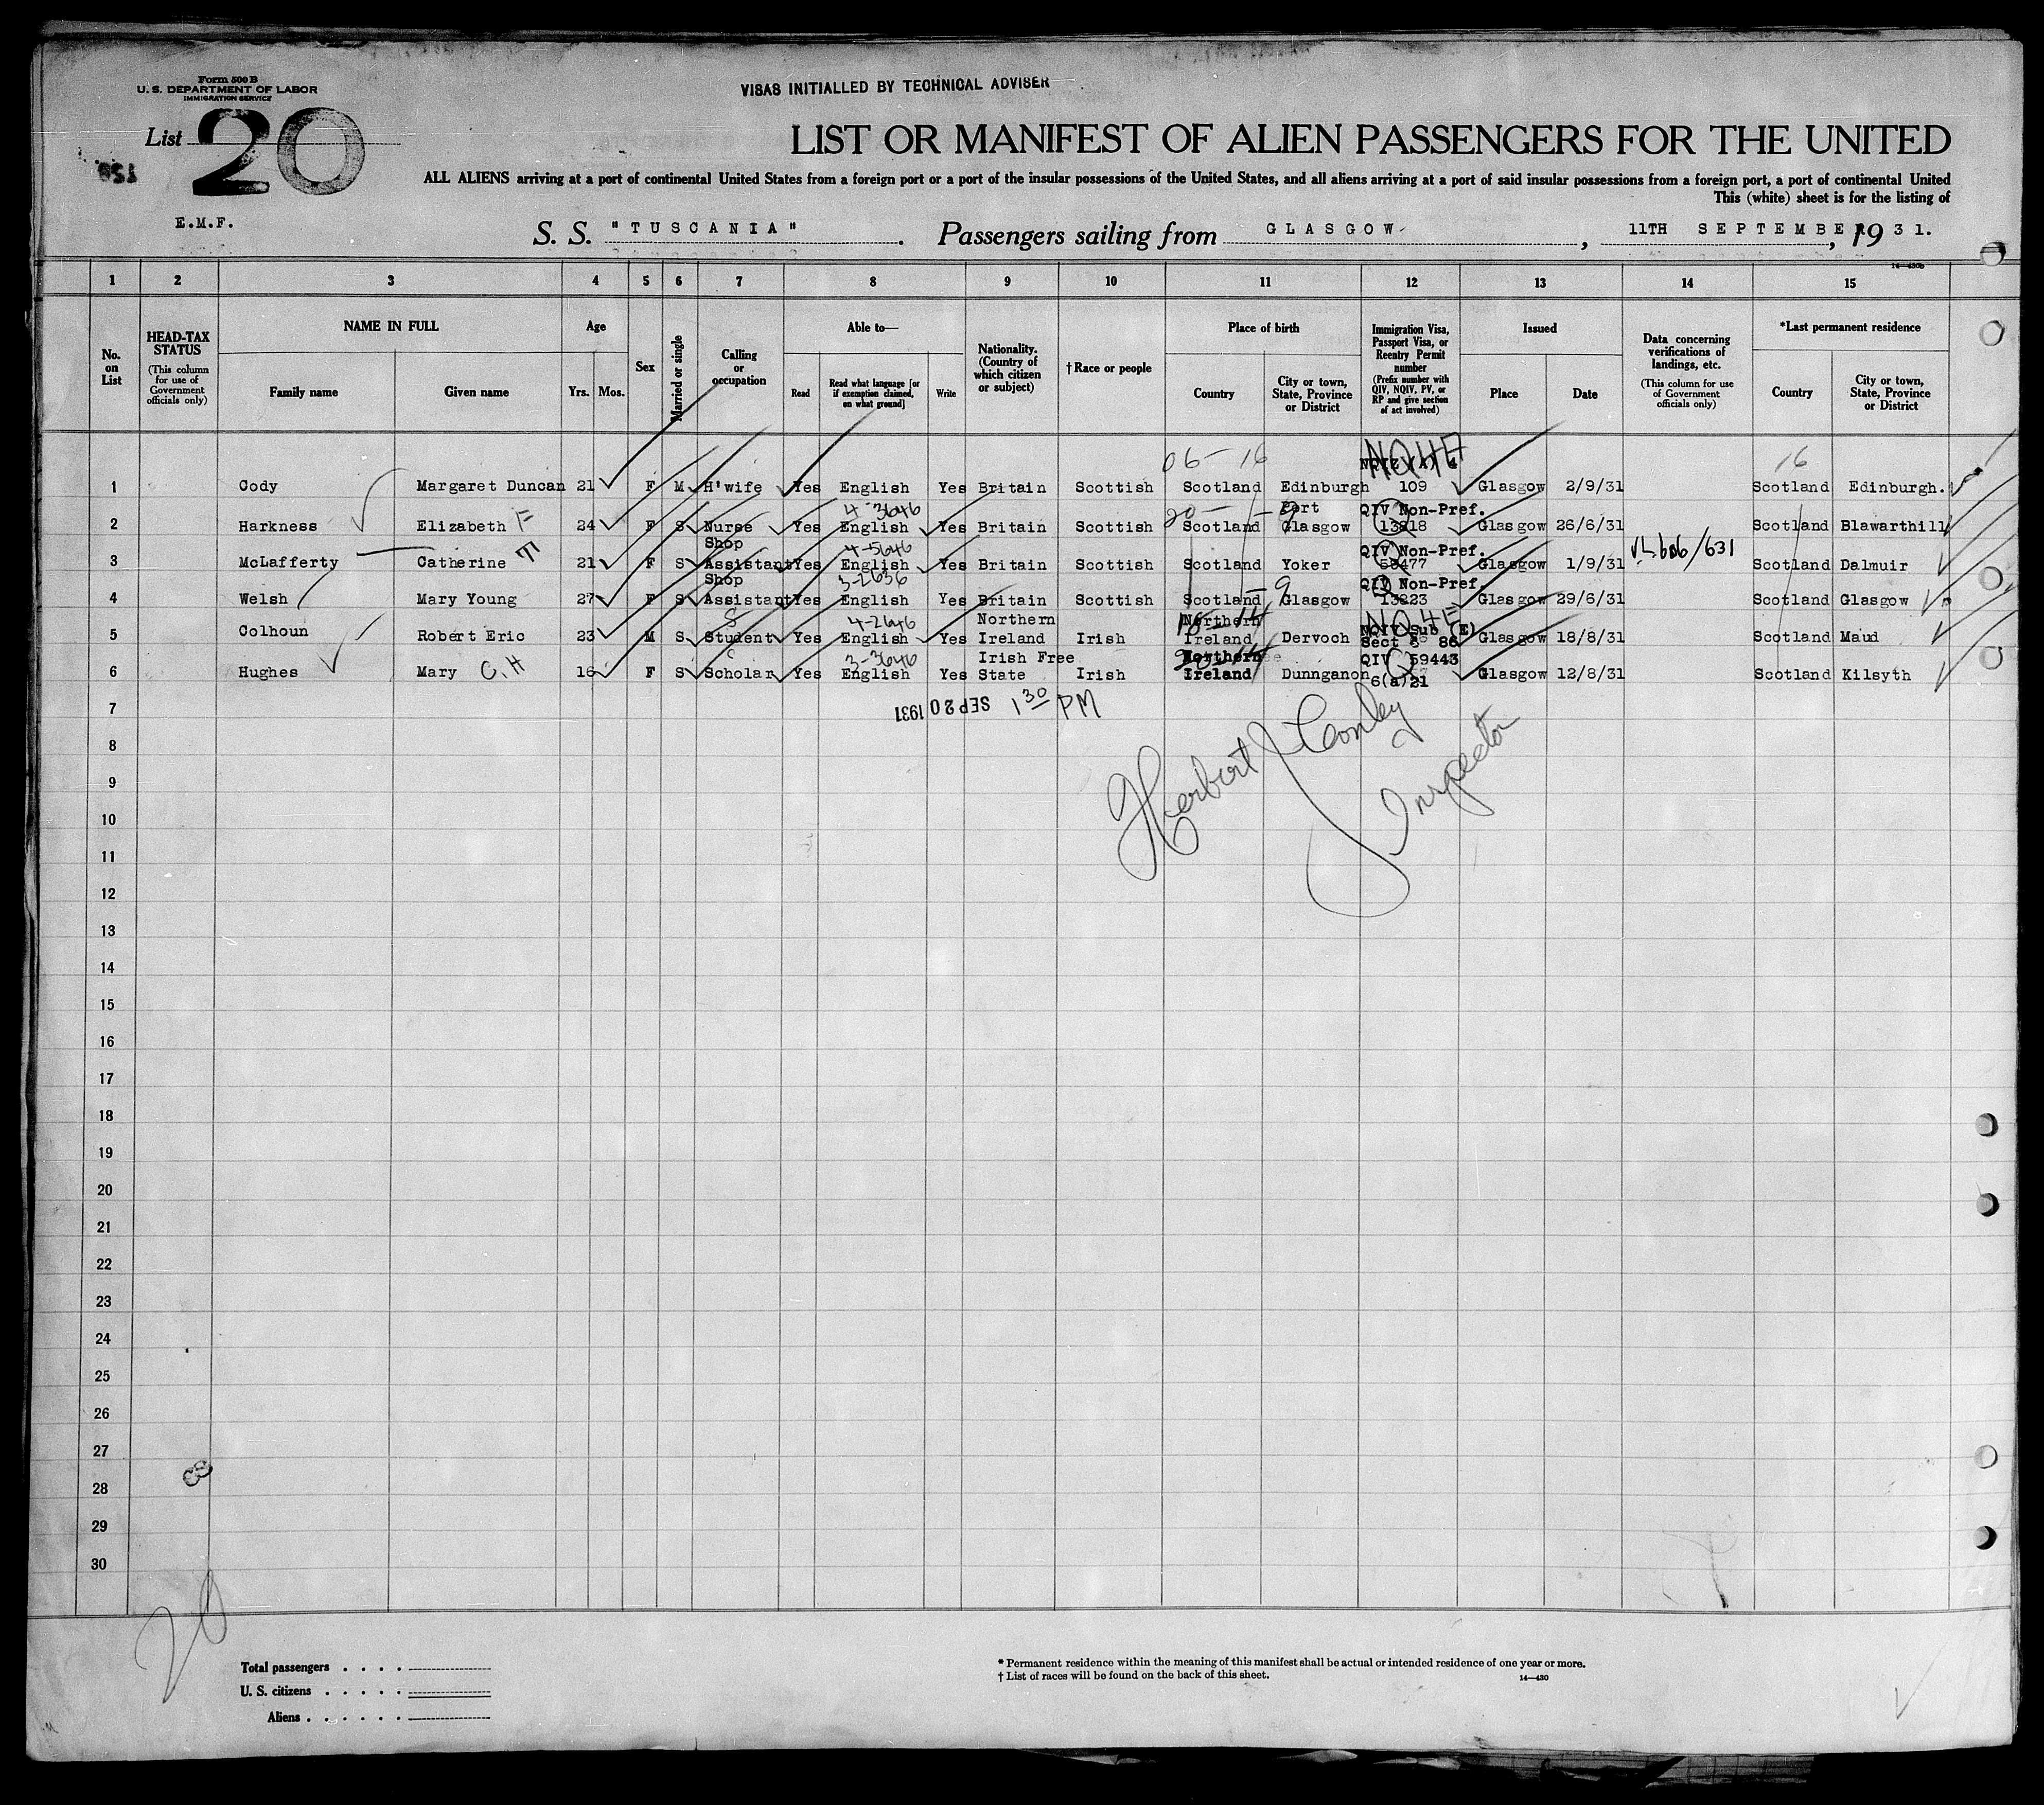 Form 500 B
U. S. DEPARTMENT OF LABOR
IMMIGRATION SERVICE
VISAS INITIALLED BY TECHNICAL ADVISER
List 20
LIST OR MANIFEST OF ALIEN PASSENGERS FOR THE UNITED
ALL ALIENS arriving at a port of continental United States from a foreign port or a port of the insular possessions of the United States, and all aliens arriving at a port of said insular possessions from a foreign port, a port of continental United
This (white) sheet is for the listing of
E.M.F.
S. S. "TUSCANIA" . Passengers sailing from GLASGOW , 11TH SEPTEMBER, 1931.
14—430b
1 2 3 4 5 6 7 8 9 10 11 12 13 14 15
No. on List
HEAD-TAX STATUS (This column for use of Government officials only)
NAME IN FULL
Family name Given name
Age
Yrs. Mos.
Sex
Married or single
Calling or occupation
Able to—
Read
Read what language [or if exemption claimed, on what ground]
Write
Nationality. (Country of which citizen or subject)
† Race or people
Place of birth
Country
City or town, State, Province or District
Immigration Visa, Passport Visa, or Reentry Permit number (Prefix number with QIV, NQIV, PV, or RP and give section of act involved)
Issued
Place Date
Data concerning verifications of landings, etc. (This column for use of Government officials only)
*Last permanent residence
Country
City or town, State, Province or District
06-16 16
1 Cody Margaret Duncan 21 F M H'wife Yes English Yes Britain Scottish Scotland Edinburgh 109 Glasgow 2/9/31 Scotland Edinburgh.
4-3646 Port QIV Non-Pref.
2 Harkness Elizabeth F 24 F S Nurse Yes English Yes Britain Scottish Scotland Glasgow 13218 Glasgow 26/6/31 Scotland Blawarthill
Shop 4-5646 QIV Non-Pref.
3 McLafferty Catherine 21 F S Assistant Yes English Yes Britain Scottish Scotland Yoker 59477 Glasgow 1/9/31 Scotland Dalmuir
Shop 3-2636 QIV Non-Pref.
4 Welsh Mary Young 27 F S Assistant Yes English Yes Britain Scottish Scotland Glasgow 13223 Glasgow 29/6/31 Scotland Glasgow
4-2646 Northern Northern NQIV Sub (E)
5 Colhoun Robert Eric 23 M S Student Yes English Yes Ireland Irish Ireland Dervoch Sect 86 Glasgow 18/8/31 Scotland Maud
3-3646 Irish Free Northern QIV 59443
6 Hughes Mary C.H 16 F S Scholar Yes English Yes State Irish Ireland Dunnganon 6(a)21 Glasgow 12/8/31 Scotland Kilsyth
7
SEP 20 1931 1 30 PM
8
Herbert J Conley
9
Inspector
10
11
12
13
14
15
16
17
18
19
20
21
22
23
24
25
26
27
28
29
30
20
Total passengers . . . .
U. S. citizens . . . . .
Aliens . . . . . .
* Permanent residence within the meaning of this manifest shall be actual or intended residence of one year or more.
† List of races will be found on the back of this sheet.
14—430